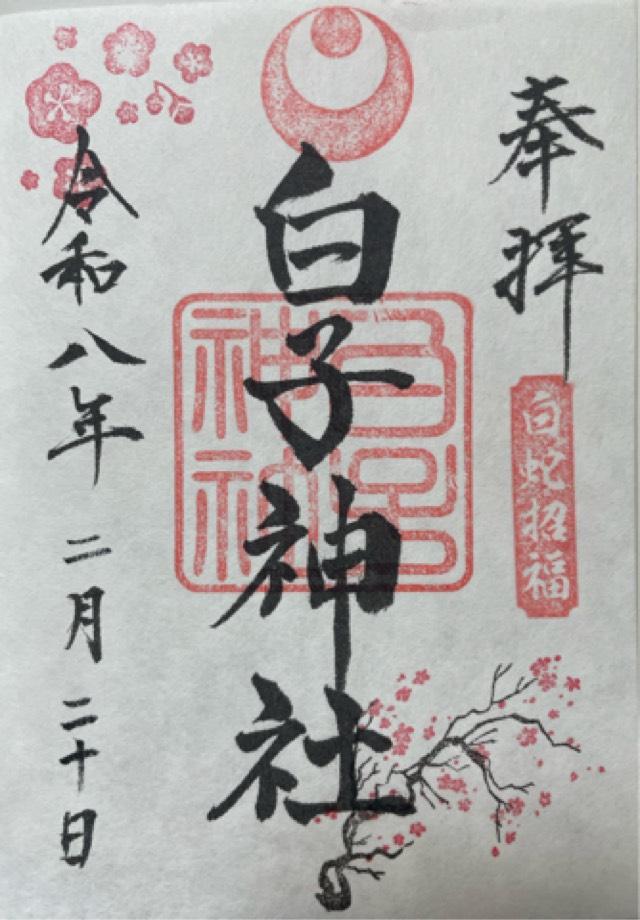 奉拝
白蛇招福
白子神社
令和八年二月二十日